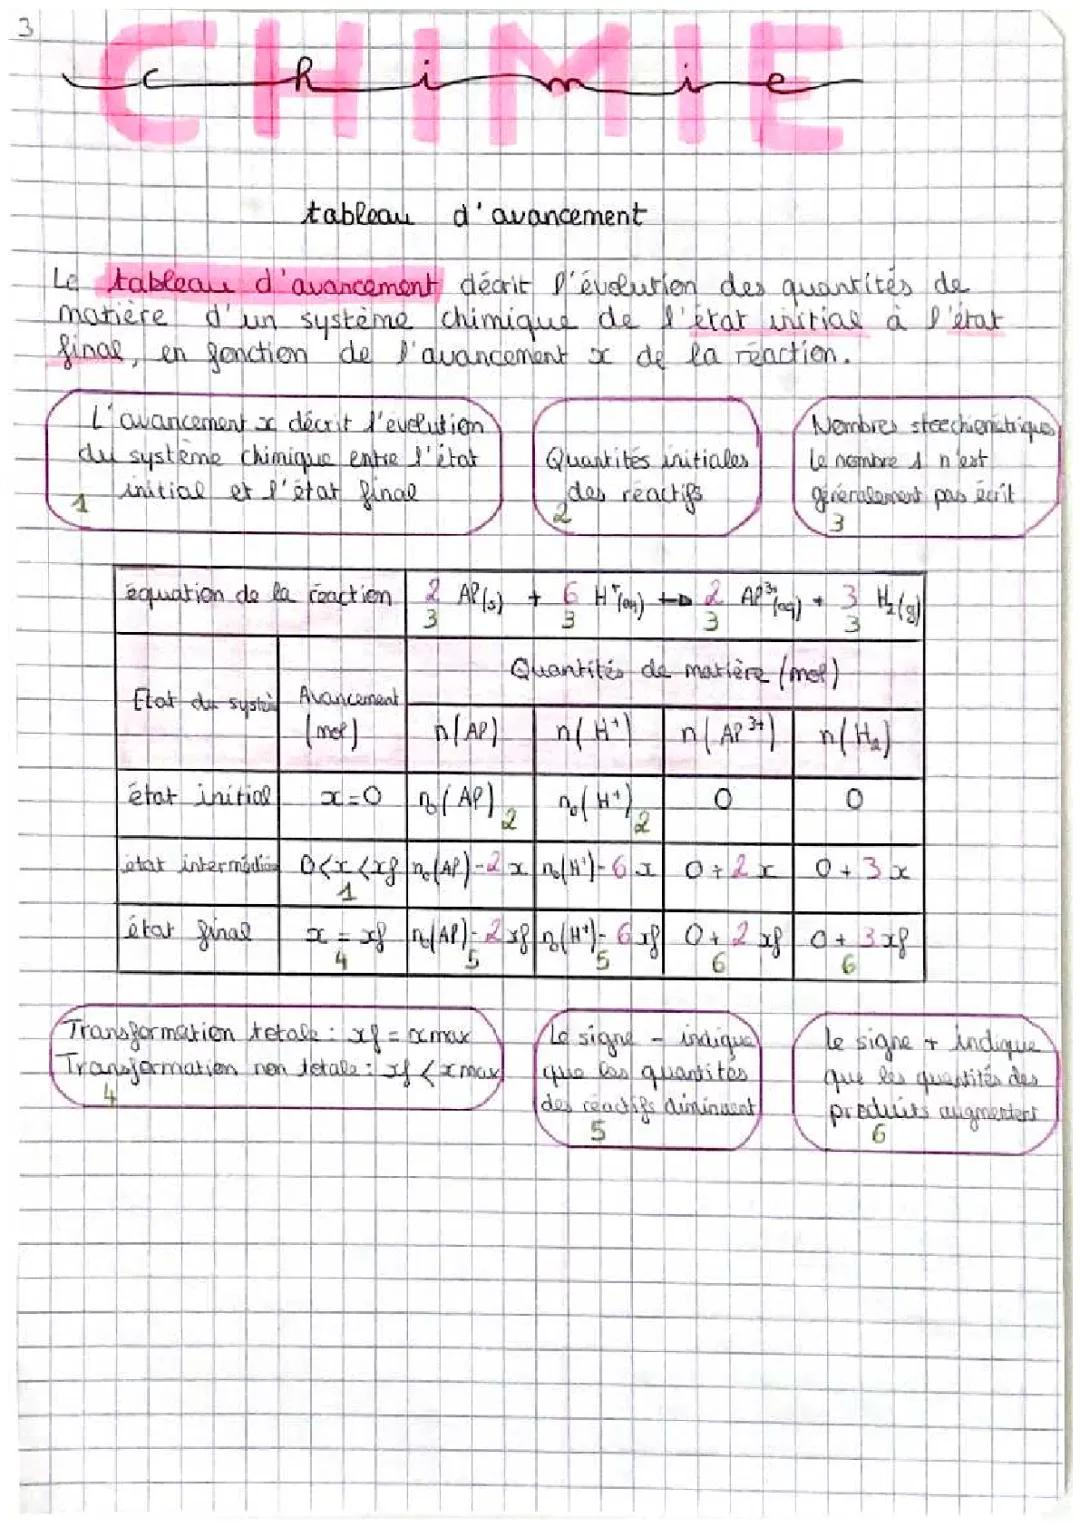 3
CHIMIE
chimie
tableau d'avancement
Le tableau d'avancement décrit l'évolution des quantités de
matière d'un système chimique de l'état initial à l'état
final, en fonction de l'avancement x de la réaction.
L'avancement x décrit l'évolution
du système chimique entre l'état
initial et l'état final
1
Quantités initiales
des réactifs
2
Nombres stoechiométriques
Le nombre 1 n'est
généralement pas écrit
3
équation de la réaction 2 Al(s) + 6 H⁺(aq) → 2 Al³⁺(aq) + 3 H₂(g)
3 3 3 3
Quantités de matière (mol)
Etat du systè Avancement (mol) n(Al) n(H⁺) n(Al³⁺) n(H₂)
état initial x=0 n₀(Al) 2 n₀(H⁺) 2 0 0
état intermédiai 0<x<xf 1 n₀(Al)-2x n₀(H⁺)-6x 0+2x 0+3x
état final x=xf 4 n₀(Al)-2xf 5 n₀(H⁺)-6xf 5 0+2xf 6 0+3xf 6
Transformation totale : xf = xmax
Transformation non totale : xf < xmax
4
Le signe - indique
que les quantités
des réactifs diminuent
5
le signe + indique
que les quantités des
produits augmentent
6